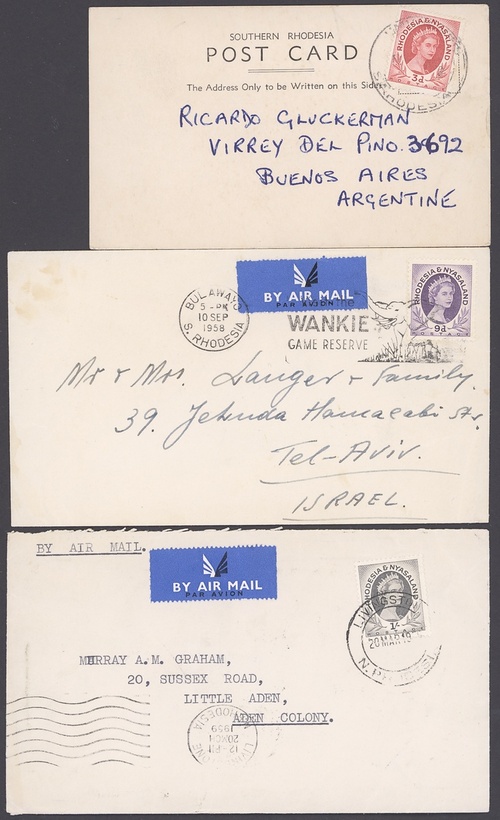 SOUTHERN RHODESIA
POST CARD
The Address Only to be Written on this Side
RHODESIA & NYASALAND
3d
S. RHODESIA
RICARDO GLUCKERMAN
VIRREY DEL PINO. 3692
BUENOS AIRES
ARGENTINE
BULAWAYO
5 - PM
10 SEP
1958
S. RHODESIA
BY AIR MAIL
PAR AVION
the
WANKIE
GAME RESERVE
RHODESIA & NYASALAND
9d
POSTAGE
Mr & Mrs. Langer & Family.
39, Jehuda Hamacabi Str.
Tel-Aviv.
ISRAEL.
BY AIR MAIL.
BY AIR MAIL
PAR AVION
RHODESIA & NYASALAND
1/-
LIVINGSTONE
20 MAR 19
MURRAY A.M. GRAHAM,
20, SUSSEX ROAD,
LITTLE ADEN,
ADEN COLONY.
LIVINGSTONE
12-PM
20 MCH
1959
RHODESIA